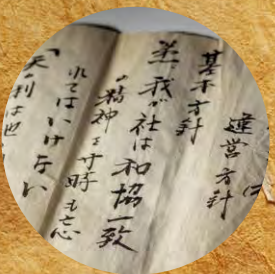 運営方針
基本方針
我が社は和協一致
の精神を寸時も忘
れてはいけない
「天の利は地